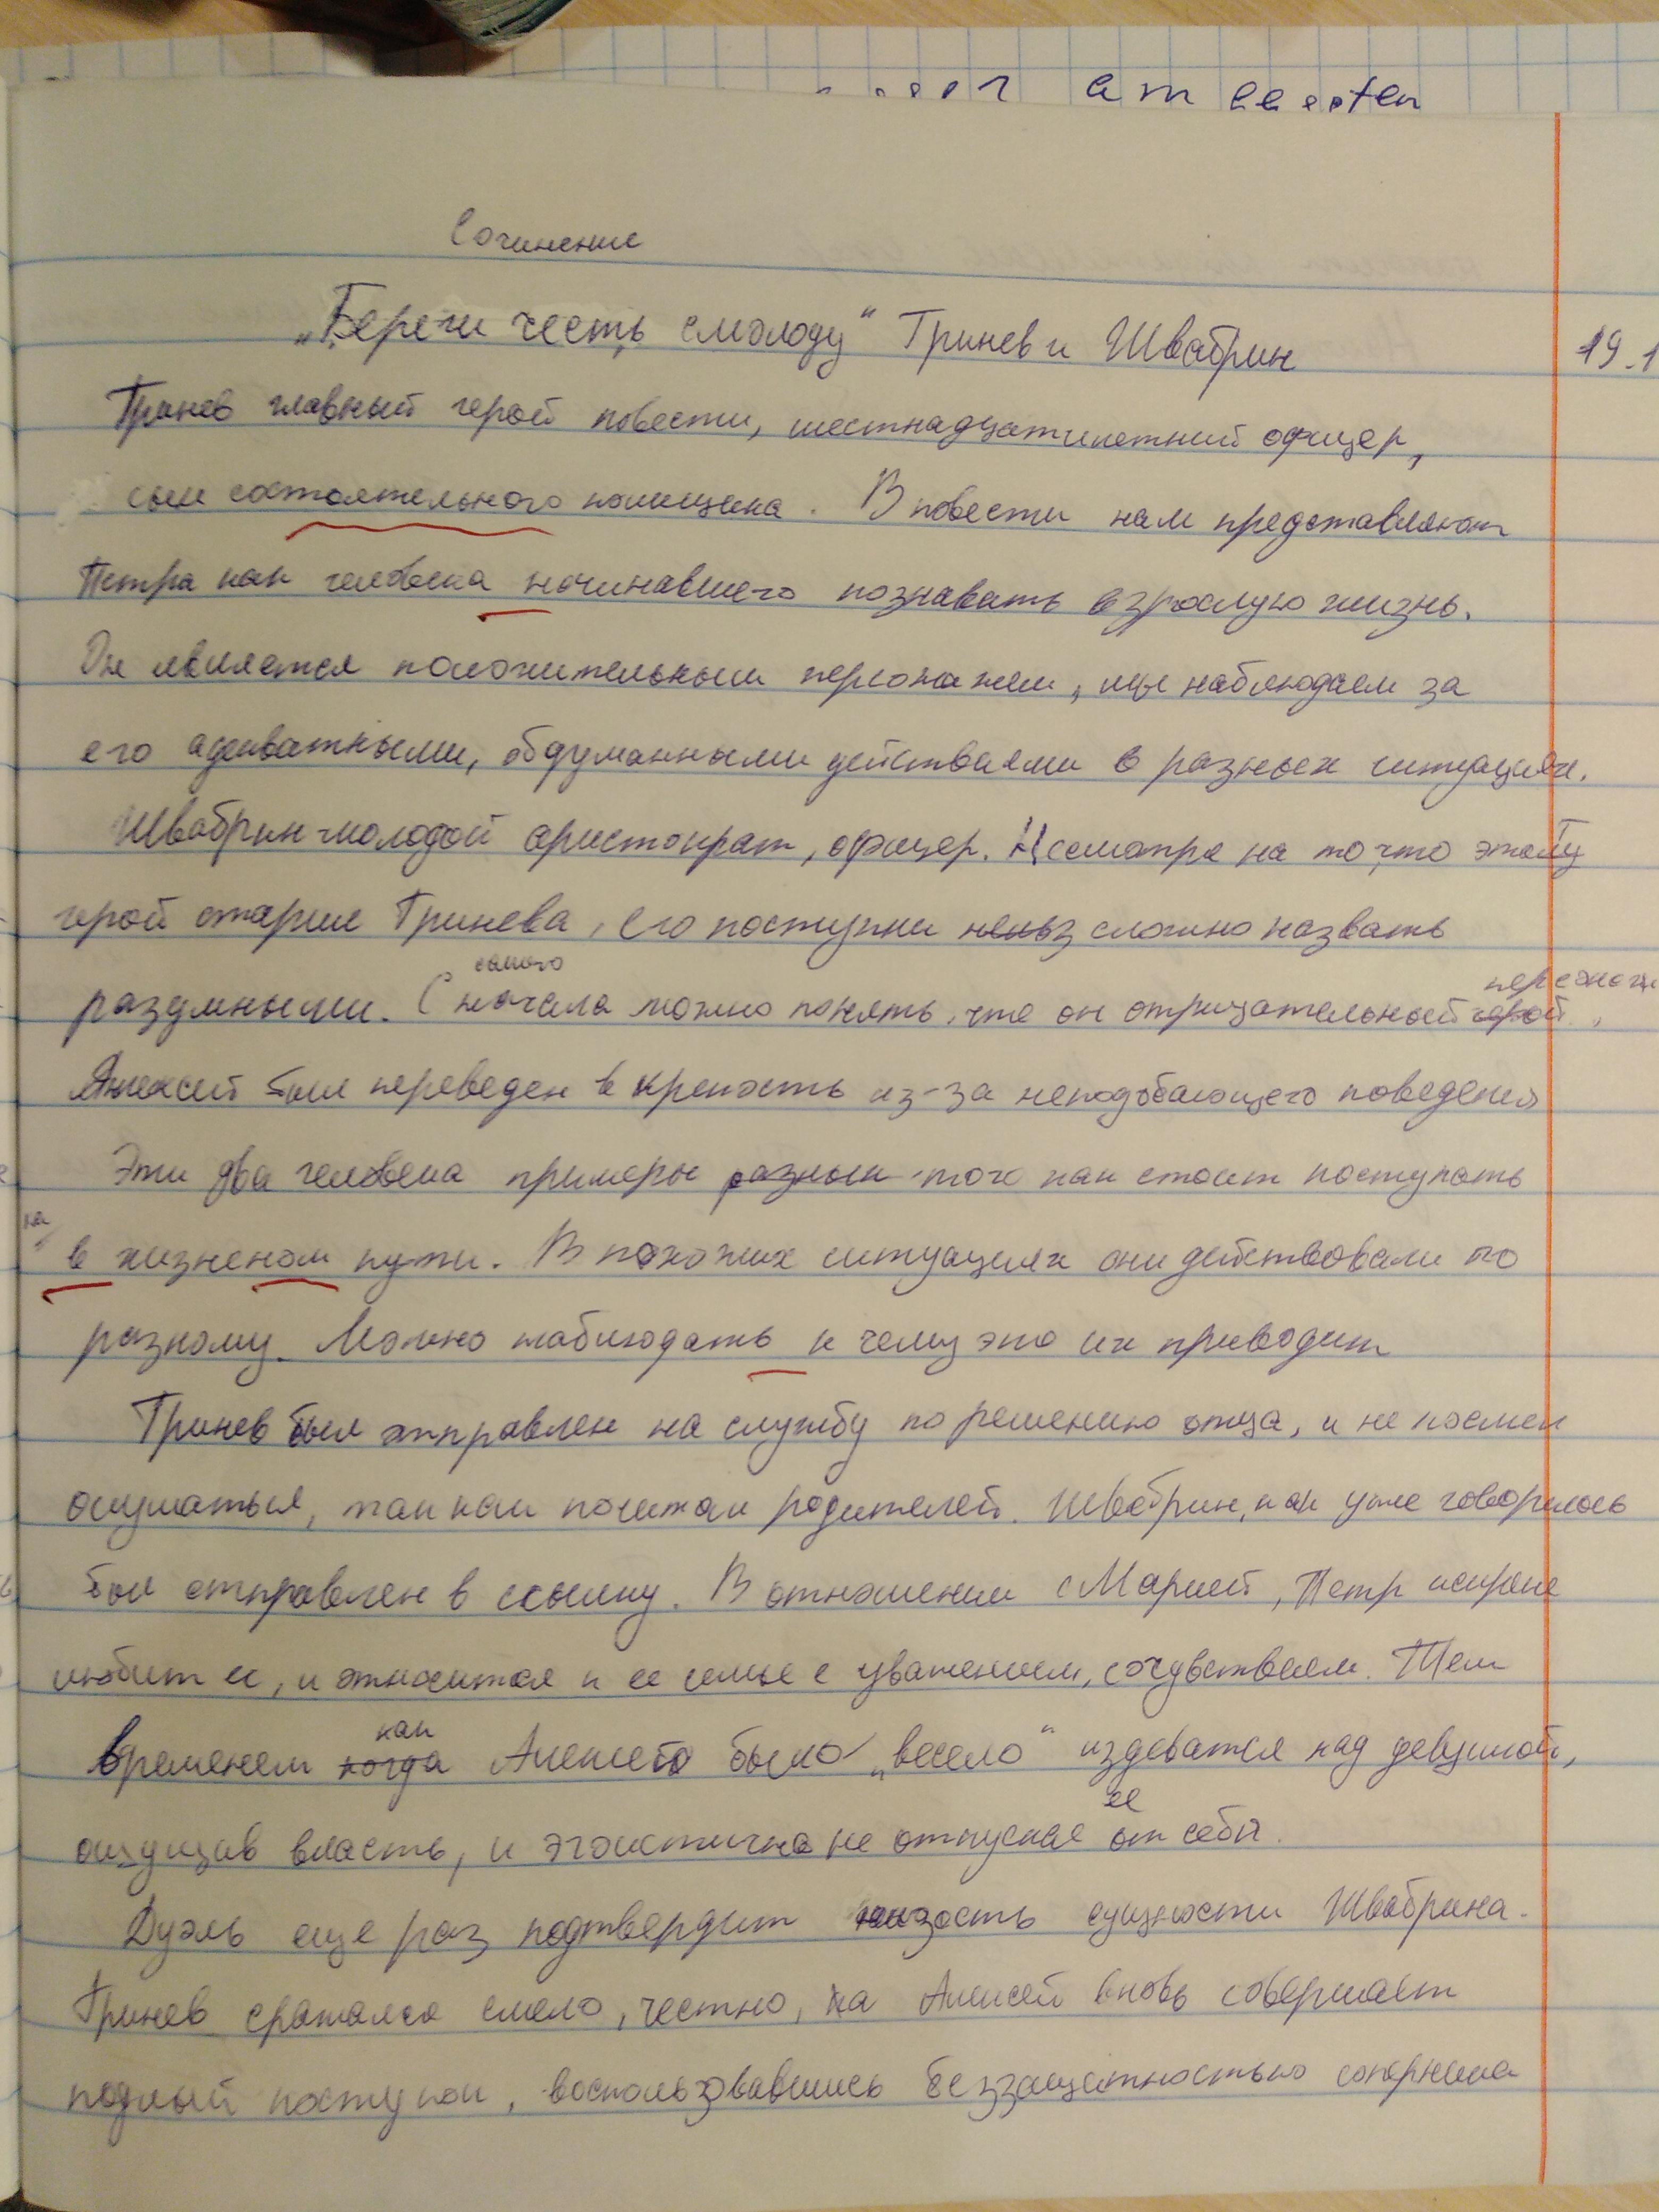 am besten
Сочинение
„Береги честь смолоду“ Гринев и Швабрин
19.1
Гринев главный герой повести, шестнадцатилетний офицер,
сын состоятельного помещика. В повести нам представляют
Петра как человека начинавшего познавать взрослую жизнь.
Он является положительным персонажем, мы наблюдаем за
его адекватными, обдуманными действиями в разных ситуациях.
Швабрин-молодой аристократ, офицер. Несмотря на то, что этот
герой старше Гринева, его поступки нельз сложно назвать
самого персонаж
разумными. С начала можно понять, что он отрицательный герой.
Алексей был переведен в крепость из-за неподобающего поведения
Эти два человека примеры разных того как стоит поступать
на
в жизненом пути. В похожих ситуациях они действовали по
разному. Можно наблюдать к чему это их приводит
Гринев был отправлен на службу по решению отца, и не посмел
ослушаться, так как почитал родителей. Швабрин, как уже говорилось
был отправлен в ссылку. В отношении с Марией, Петр искрене
любит ее, и относится к ее семье с уважением, сочувствием. Тем
как
временем когда Алексею было „весело“ издеватся над девушкой,
ее
ощущив власть, и эгоистично не отпуская от себя.
Дуэль еще раз подтвердит низость сущности Швабрина.
Гринев сражался смело, честно, а Алексей вновь совершает
подлый поступок, воспользовавшись беззащитностью соперника